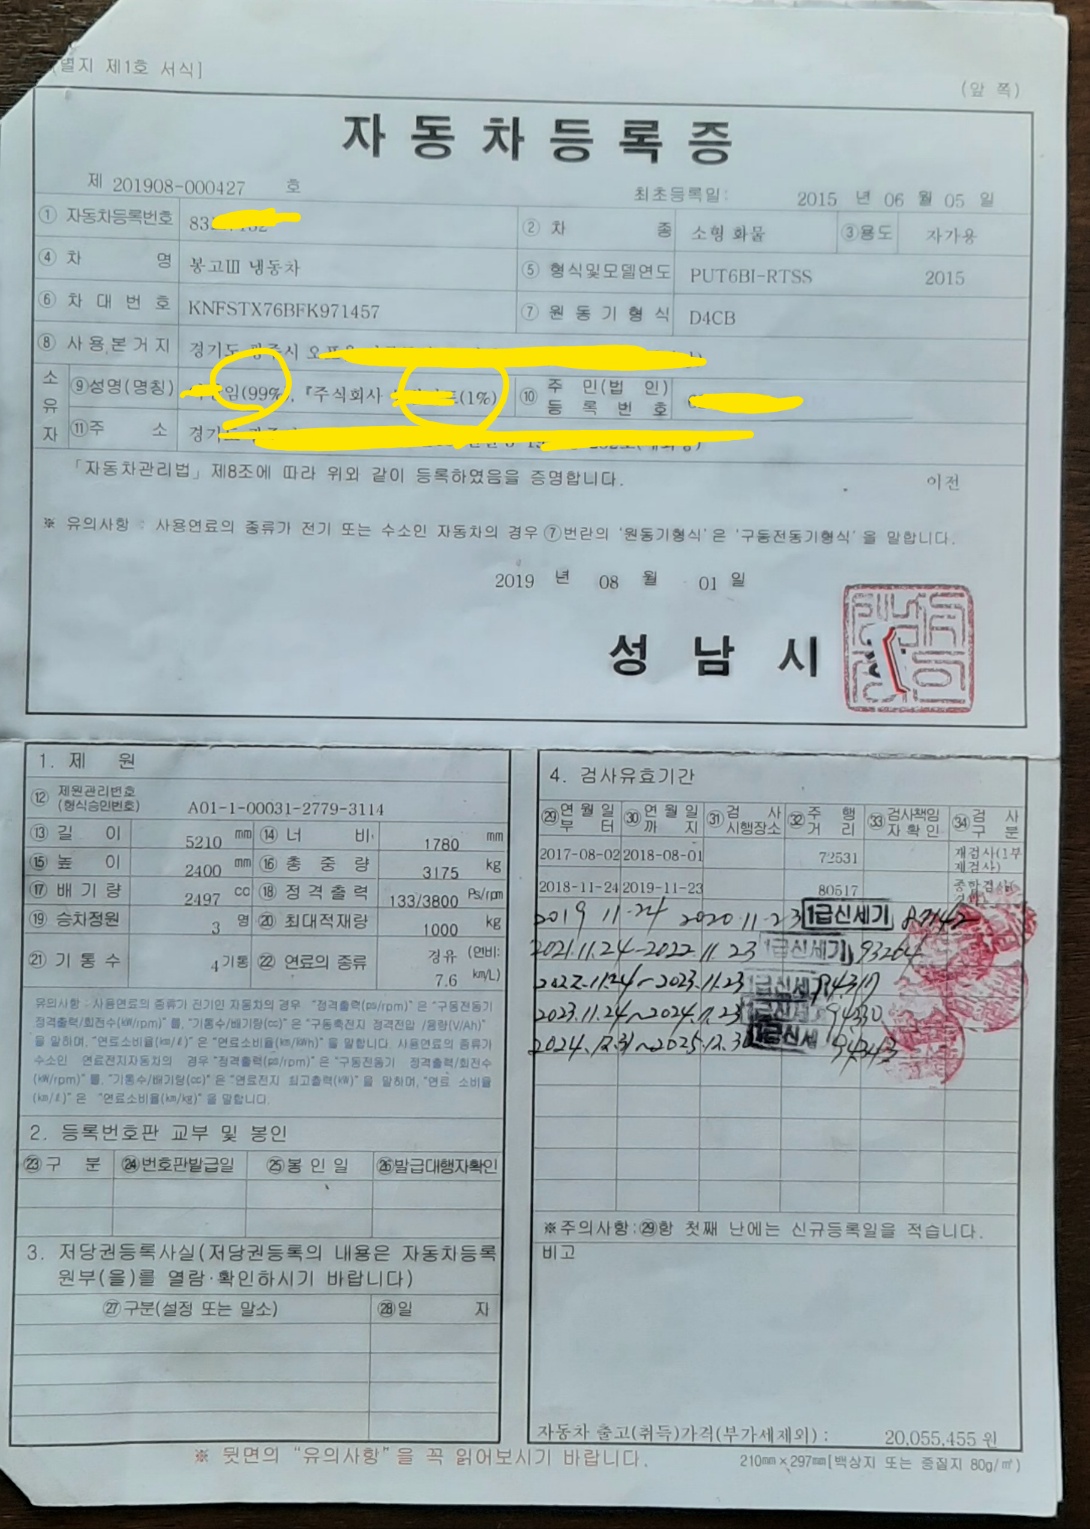 [별지 제1호 서식]
(앞 쪽)
자동차등록증
제 201908-000427 호
최초등록일: 2015 년 06 월 05 일
① 자동차등록번호 83
② 차 종 소형 화물 ③용도 자가용
④ 차 명 봉고Ⅲ 냉동차
⑤ 형식및모델연도 PUT6BI-RTSS 2015
⑥ 차 대 번 호 KNFSTX76BFK971457
⑦ 원 동 기 형 식 D4CB
⑧ 사 용 본 거 지 경기도 광주시
소유자
⑨성명(명칭) 임(99%), 『주식회사 (1%)
⑩ 주 민(법 인) 등 록 번 호
⑪주 소 경기
「자동차관리법」 제8조에 따라 위와 같이 등록하였음을 증명합니다.
이전
※ 유의사항 : 사용연료의 종류가 전기 또는 수소인 자동차의 경우 ⑦번란의 '원동기형식'은 '구동전동기형식'을 말합니다.
2019 년 08 월 01 일
성 남 시
1. 제 원
⑫ 제원관리번호 (형식승인번호) A01-1-00031-2779-3114
⑬ 길 이 5210 mm ⑭ 너 비 1780 mm
⑮ 높 이 2400 mm ⑯ 총 중 량 3175 kg
⑰ 배 기 량 2497 cc ⑱ 정 격 출 력 133/3800 Ps/rpm
⑲ 승차정원 3 명 ⑳ 최대적재량 1000 kg
㉑ 기 통 수 4 기통 ㉒ 연료의 종류 경유 (연비: 7.6 km/L)
유의사항 : 사용연료의 종류가 전기인 자동차의 경우 "정격출력(ps/rpm)"은 "구동전동기
정격출력/회전수(kW/rpm)"를, "기통수/배기량(cc)"은 "구동축전지 정격전압 /용량(V/Ah)"
을 말하며, "연료소비율(km/ℓ)"은 "연료소비율(km/kWh)"을 말합니다. 사용연료의 종류가
수소인 연료전지자동차의 경우 "정격출력(ps/rpm)"은 "구동전동기 정격출력/회전수
(kW/rpm)"를, "기통수/배기량(cc)"은 "연료전지 최고출력(kW)"을 말하며, "연료 소비율
(km/ℓ)"은 "연료소비율(km/kg)"을 말합니다.
2. 등록번호판 교부 및 봉인
㉓구 분 ㉔번호판발급일 ㉕봉 인 일 ㉖발급대행자확인
3. 저당권등록사실(저당권등록의 내용은 자동차등록
원부(을)를 열람·확인하시기 바랍니다)
㉗구분(설정 또는 말소) ㉘일 자
4. 검사유효기간
㉙연 월 일 부 터 ㉚연 월 일 까 지 ㉛검 사 시행장소 ㉜주 행 거 리 ㉝검사책임 자 확 인 ㉞검 사 구 분
2017-08-02 2018-08-01 72531 재검사(1부 재검사)
2018-11-24 2019-11-23 80517 종합검사
2019 11.24 2020.11.23 1급신세기 87142
2021.11.24-2022.11.23 1급신세기 93264
2022.11.24~2023.11.23 1급신세
2023.11.24~2024.11.23 1급신세
2024.12.31~2025.12.30 1급신세
※주의사항:㉙항 첫째 난에는 신규등록일을 적습니다.
비고
자동차 출고(취득)가격(부가세제외) : 20,055,455 원
※ 뒷면의 "유의사항"을 꼭 읽어보시기 바랍니다.
210mm×297mm[백상지 또는 중질지 80g/㎡)